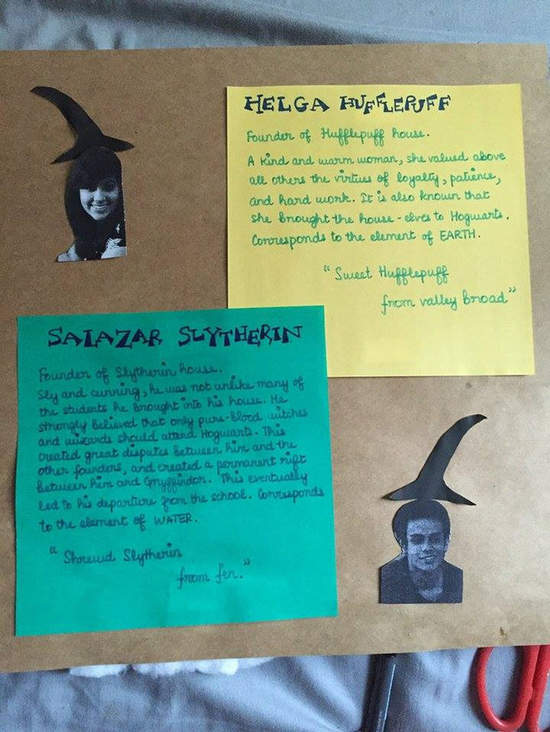 HELGA HUFFLEPUFF
Founder of Hufflepuff house.
A kind and warm woman, she valued above
all others the virtues of loyalty, patience,
and hard work. It is also known that
she brought the house-elves to Hogwarts.
Corresponds to the element of EARTH.
"Sweet Hufflepuff
from valley broad"
SALAZAR SLYTHERIN
Founder of Slytherin house.
Sly and cunning, he was not unlike many of
the students he brought into his house. He
strongly believed that only pure-blood witches
and wizards should attend Hogwarts. This
created great disputes between him and the
other founders, and created a permanent rift
between him and Gryffindor. This eventually
led to his departure from the school. Corresponds
to the element of WATER.
"Shrewd Slytherin
from fen."